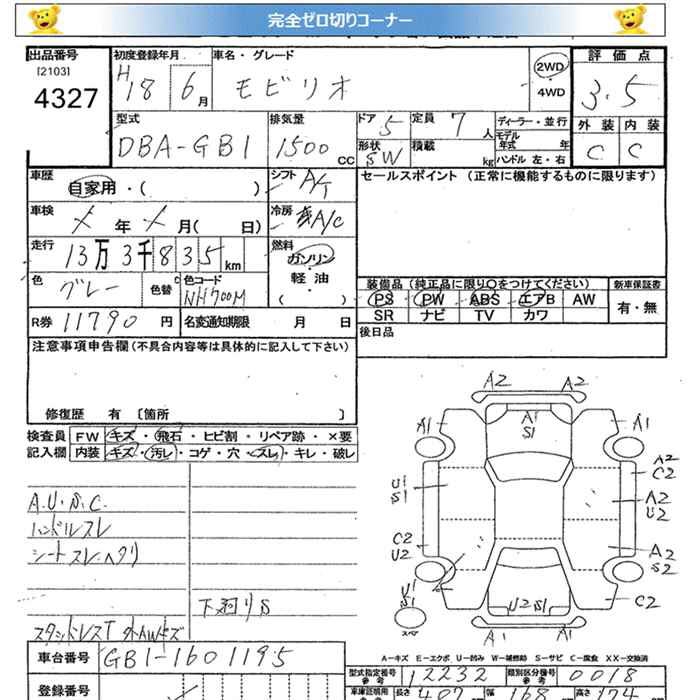 完全ゼロ切りコーナー
出品番号
[2103]
4327
初度登録年月
H18 6月
車名・グレード
モビリオ
2WD
4WD
評価点
3.5
外装 内装
C C
型式
DBA-GB1
排気量
1500 CC
ドア 5
定員 7人
形状 SW
積載 kg
ディーラー・並行
モデル年式 年
ハンドル 左・右
車歴
自家用・( )
シフト A/T
車検
年 月( 日)
冷房 A/C
走行
13万3千835km
燃料
ガソリン
軽油
( )
色
グレー
色替
色コード
NH700M
R券 11790円
名変通知期限 月 日
セールスポイント(正常に機能するものに限ります)
装備品(純正品に限り○をつけてください)
PS PW ABS エアB AW
SR ナビ TV カワ
新車保証書
有・無
後日品
注意事項申告欄(不具合内容等は具体的に記入して下さい)
修復歴 有〔箇所 〕
検査員記入欄
FW キズ・飛石・ヒビ割・リペア跡・×要
内装 キズ・汚レ・コゲ・穴・スレ・キレ・破レ
A.U.S.C.
ハンドルスレ
シートスレヘタリ
下廻りS
スタッドレスT 外AWキズ
A2 A2
A1 A1 A1
S1
A2
C2
U1
S1
A2
U2
C2
U2
A2
S2
U1
S1
U2S1
C2
スペア
A1 A1
A-キズ E-エクボ U-凹み W-補修跡 S-サビ C-腐食 XX-交換済
車台番号 GB1-1601195
型式指定番号 参考 12232
類別区分番号 参考 0018
登録番号
車庫証明用 参考 長さ 407 幅 168 高さ 174